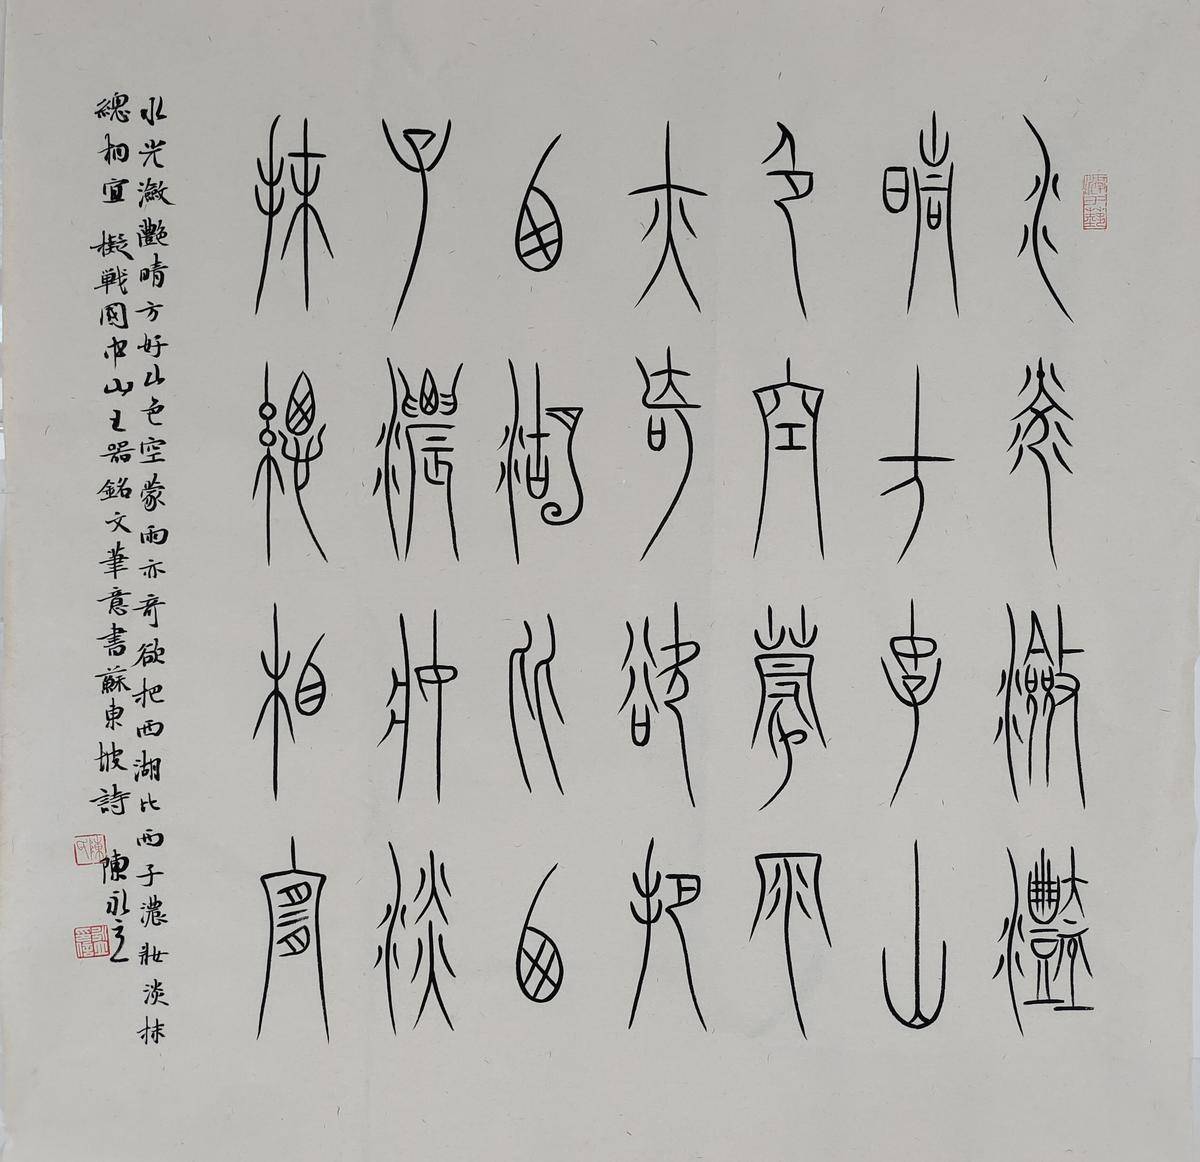 水光瀲灩
晴方好山
色空蒙雨
亦奇欲把
西湖比西
子濃妝淡
抹總相宜
水光瀲灩晴方好山色空蒙雨亦奇欲把西湖比西子濃妝淡抹
總相宜 擬戰國中山王器銘文筆意書蘇東坡詩 陳永之